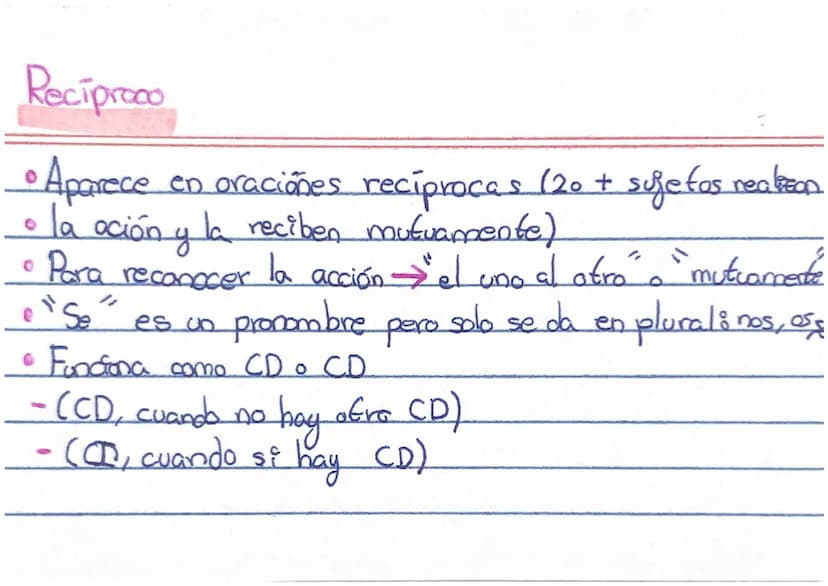 Recíproco
• Aparece en oraciones recíprocas (2 o + sujetos realizan
• la acción y la reciben mutuamente)
• Para reconocer la acción → "el uno al otro" o "mutuamente
• "Se" es un pronombre pero solo se da en plural: nos, os,
• Funciona como CD o CD
- (CD, cuando no hay otro CD)
- (CI, cuando si hay CD)